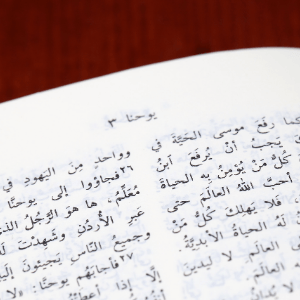 يوحنا ٣
كما رَفَعَ موسى الحَيَّةَ في
يَجِبُ أنْ يُرفَعَ ابنُ
كُلُّ مَنْ يُؤمِنُ بِهِ الحياةَ
أحَبَّ اللهُ العالَمَ حتى
فلا يَهلِكَ كُلُّ مَنْ
لَهُ الحياةُ الأبديَّةُ
العالَمِ لا ليَدينَ
العالَمَ
وواحدٍ مِنَ اليَهودِ في
٢٦فجاؤوا إلى يوحنَّا
مُعَلِّمُ، ها هوَ الرَّجُلُ الذي
عَبرِ الأُردُنِّ وشَهِدْتَ لَه
وجميعُ النَّاسِ يَجيئونَ إلَيهِ
٢٧فأجابَهُم يوحنَّا: «لا
إلَّا إذا أعطاهُ